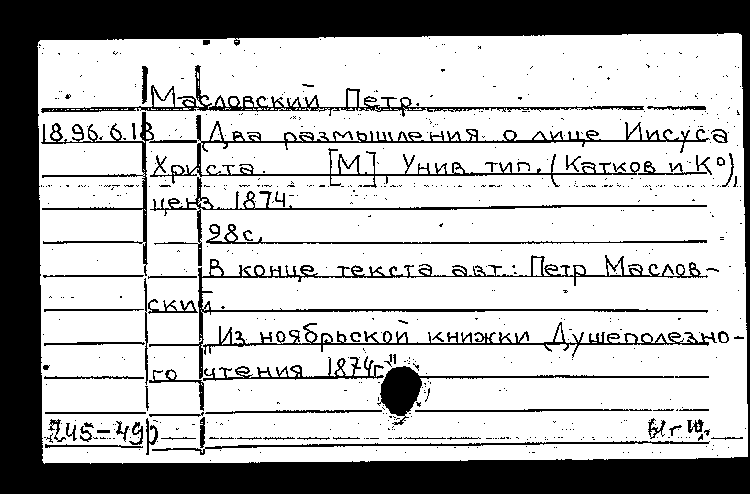 Масловский, Петр.
18.96.6.18 Два размышления о лице Иисуса
Христа. [М.], Унив. тип. (Катков и К°),
ценз. 1874.
28с.
В конце текста авт.: Петр Маслов-
ский.
"Из ноябрьской книжки Душеполезно-
го чтения 1874г."
245-49